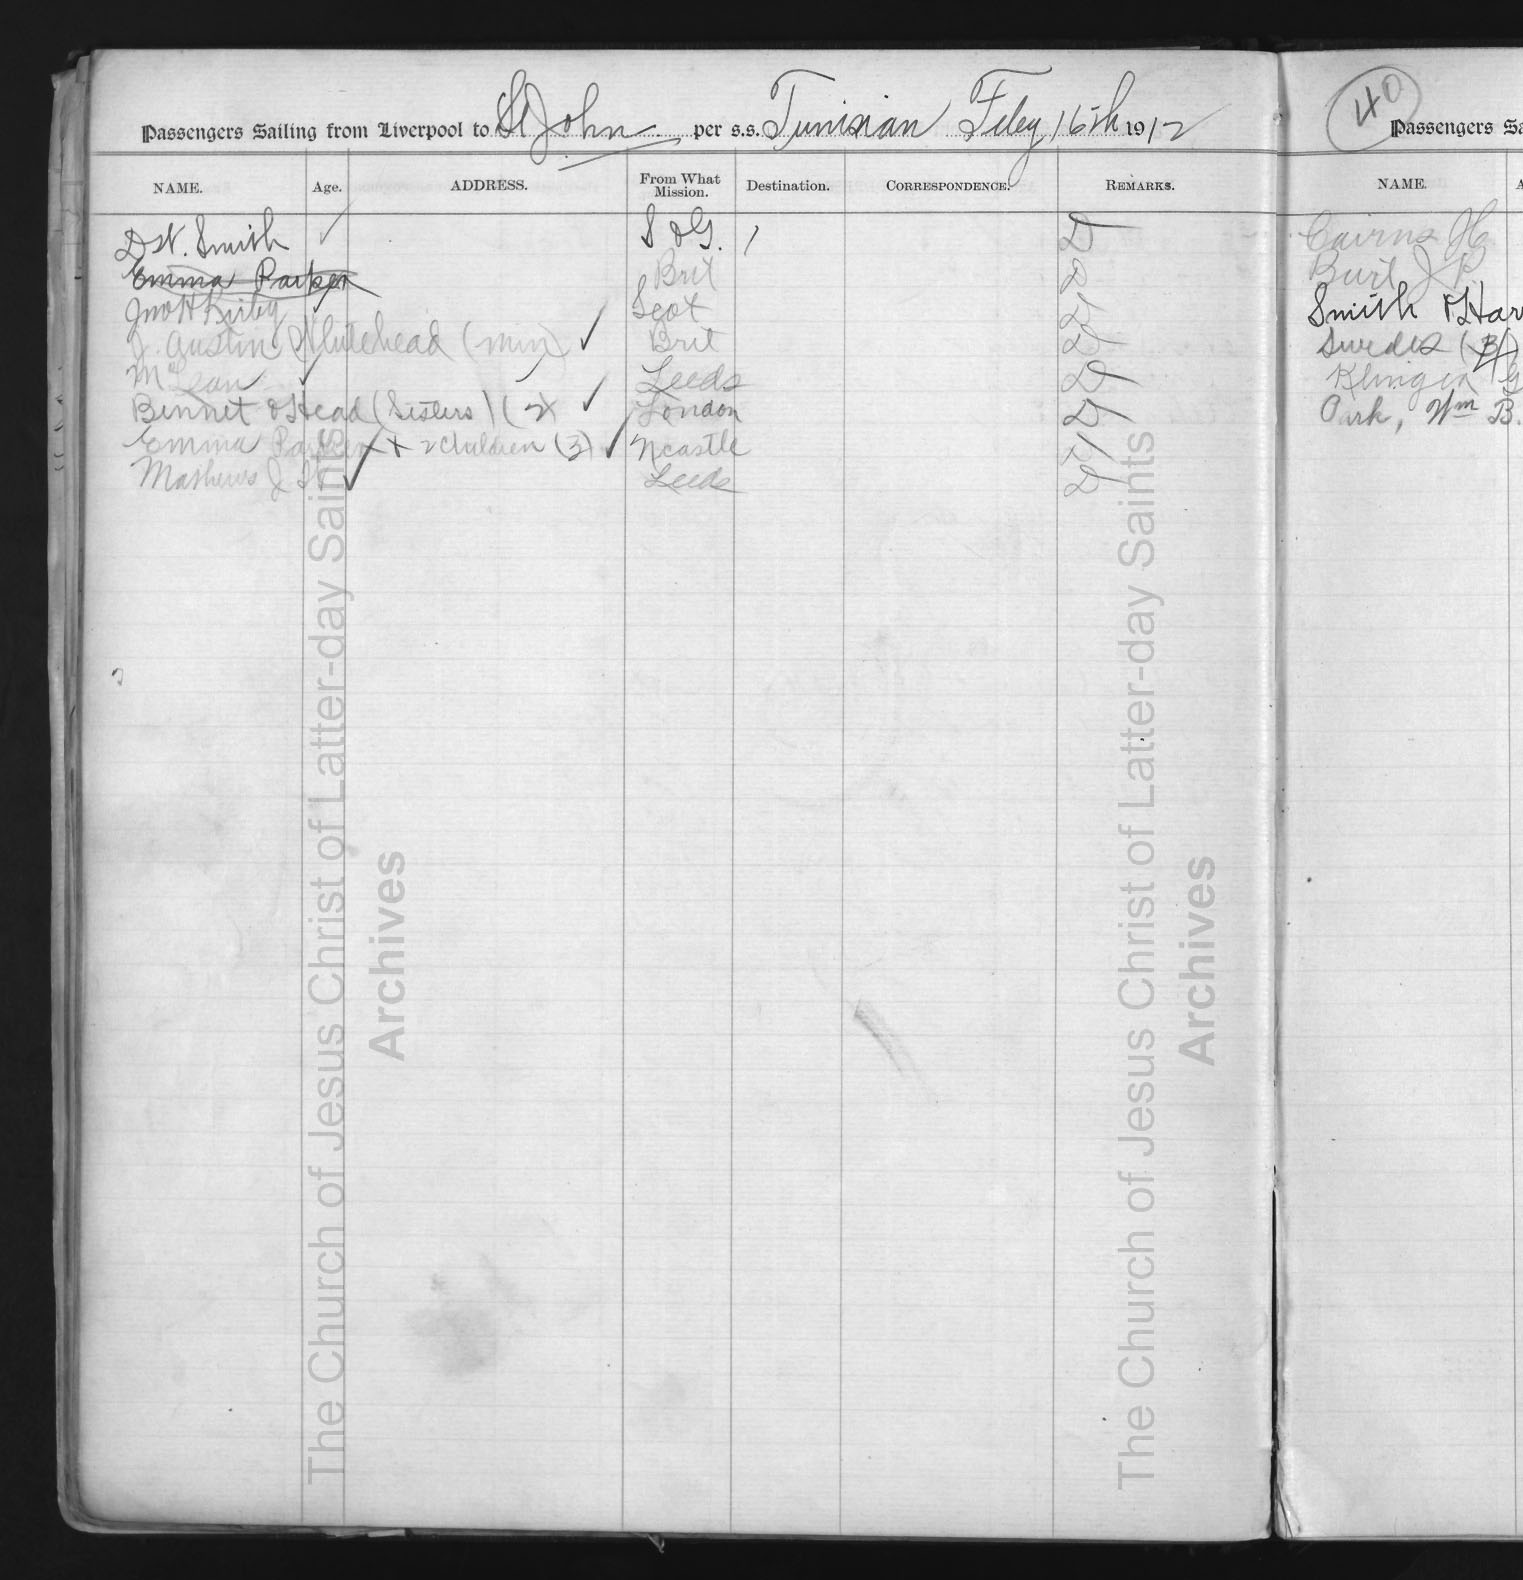 Passengers Sailing from Liverpool to St John per s.s. Tunisian Feby 16th 1912
NAME. Age. ADDRESS. From What Mission. Destination. CORRESPONDENCE. REMARKS.
Smith S & G. D
Emma Parker Brit D
Jno H Kirby Scot D
J. Austin Whitehead (min) Brit D
McLean Leeds D
Bennet & Head (Sisters) (2) London D
Emma Parker + 2 children (3) Ncastle D
Mathews J Leeds D
40
Passengers Sa
NAME. A
Cairns
Burt J
Smith & Har
Swedes
Klingen
Park, Wm B.
The Church of Jesus Christ of Latter-day Saints
Archives
The Church of Jesus Christ of Latter-day Saints
Archives